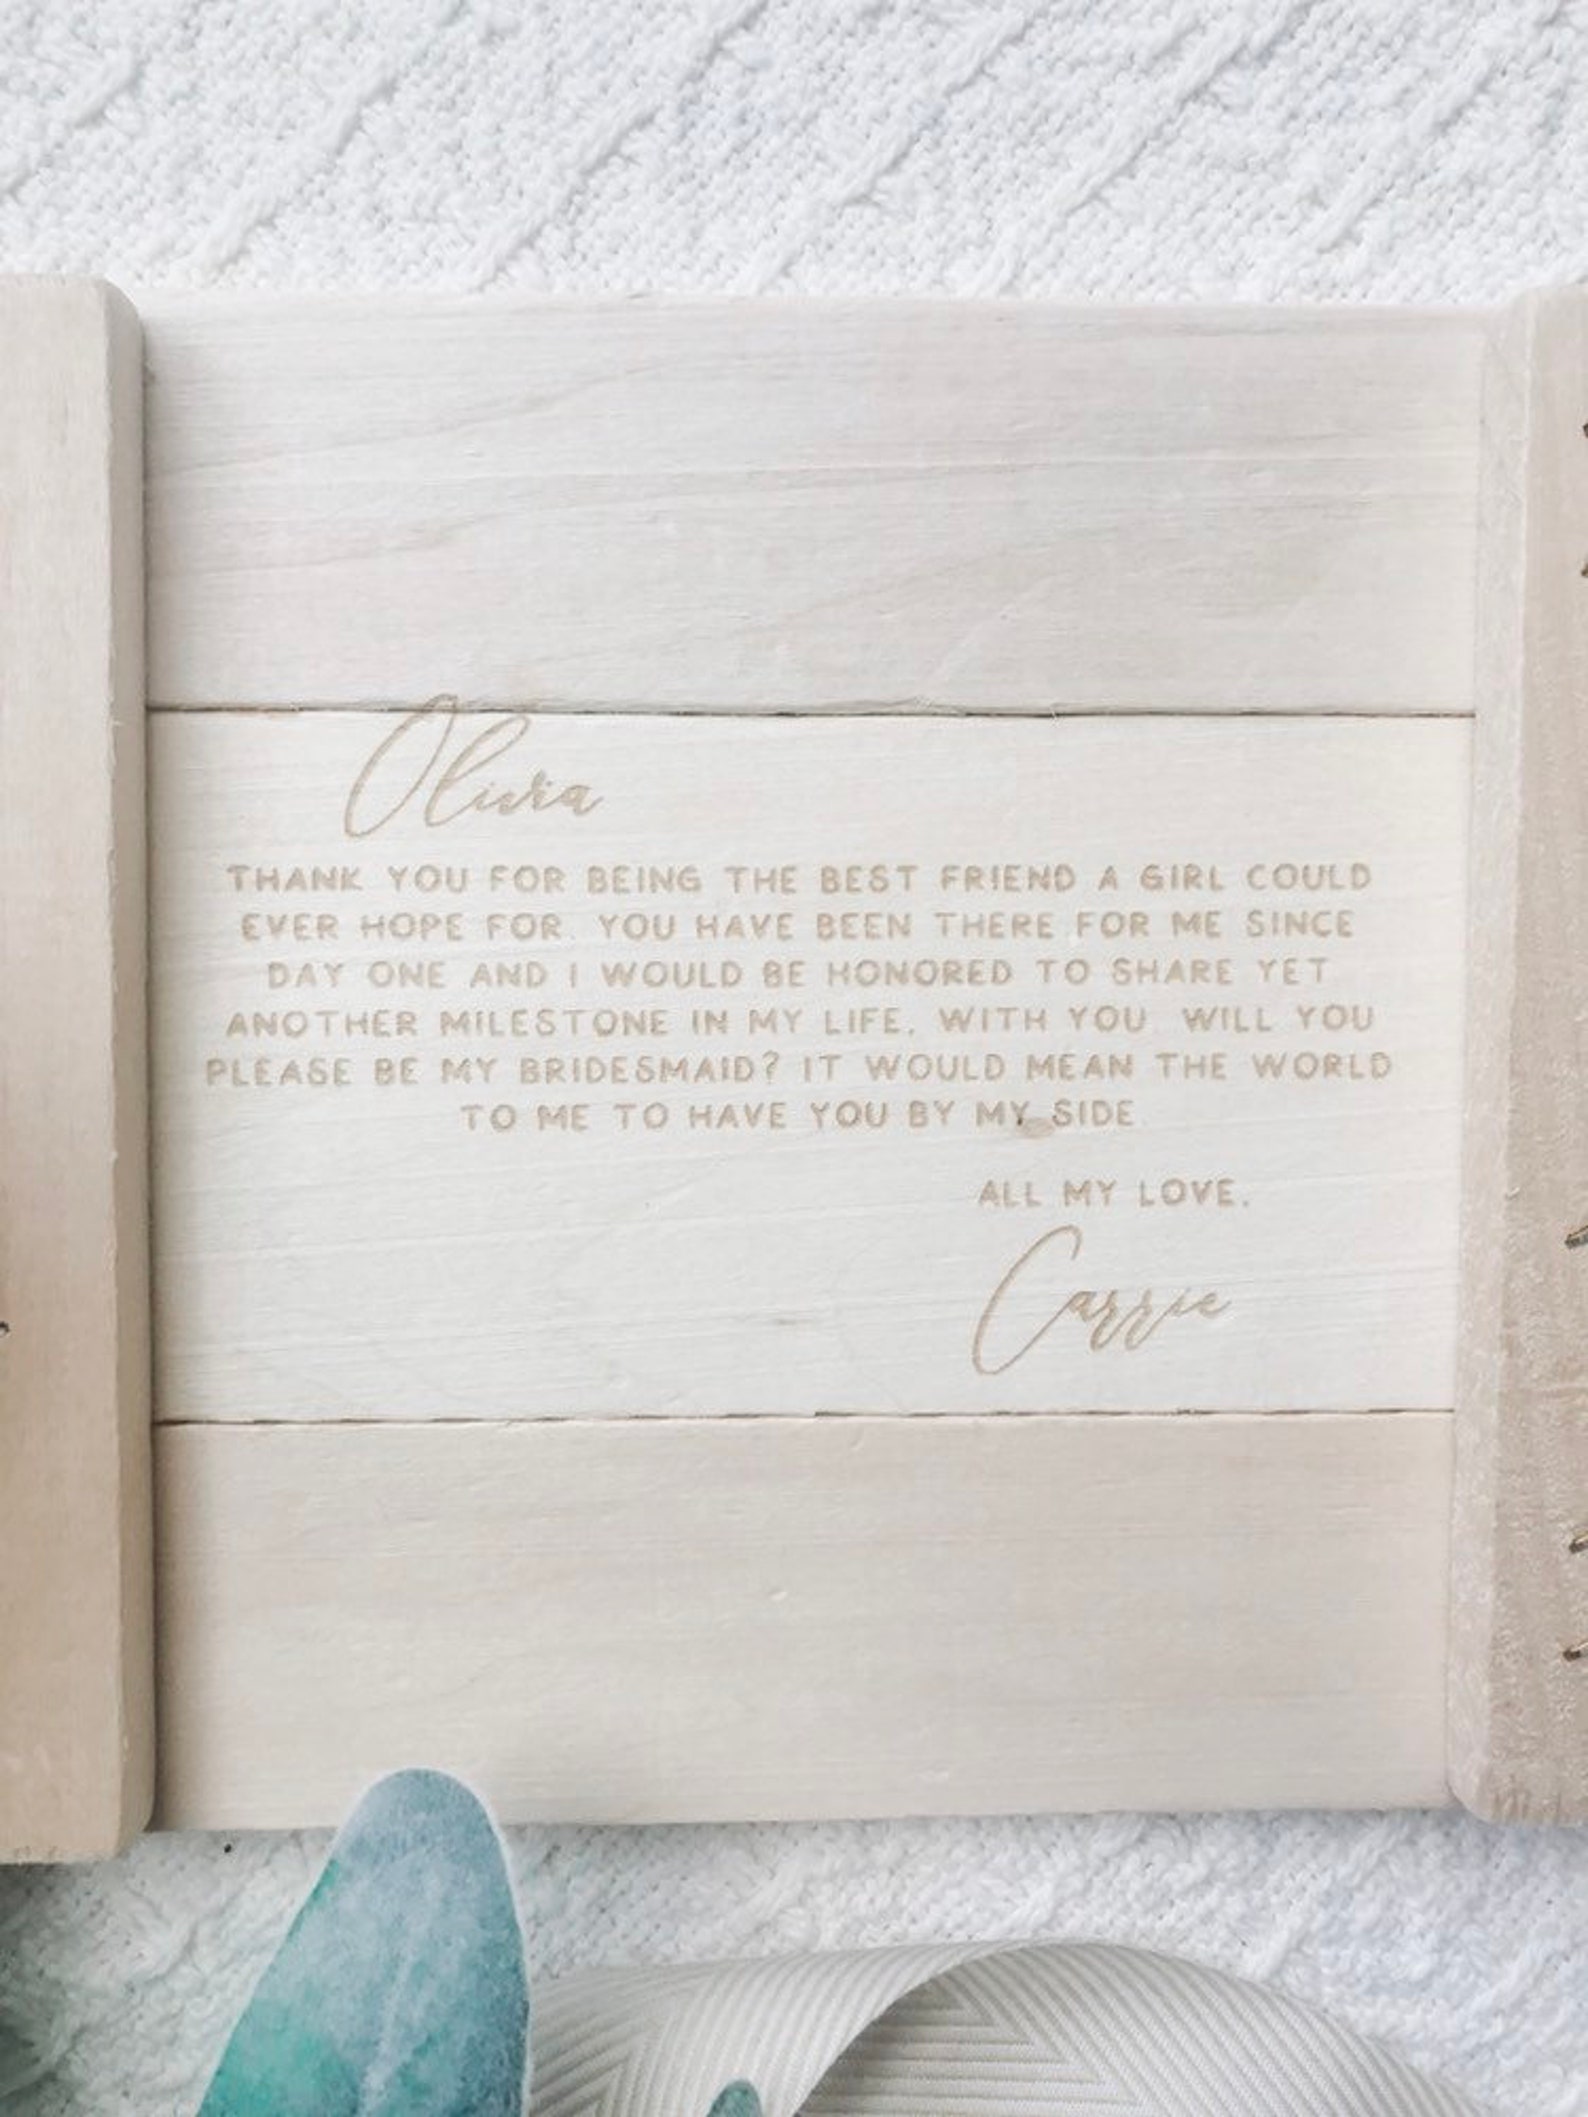 Olivia
THANK YOU FOR BEING THE BEST FRIEND A GIRL COULD
EVER HOPE FOR. YOU HAVE BEEN THERE FOR ME SINCE
DAY ONE AND I WOULD BE HONORED TO SHARE YET
ANOTHER MILESTONE IN MY LIFE, WITH YOU. WILL YOU
PLEASE BE MY BRIDESMAID? IT WOULD MEAN THE WORLD
TO ME TO HAVE YOU BY MY SIDE.
ALL MY LOVE,
Carrie